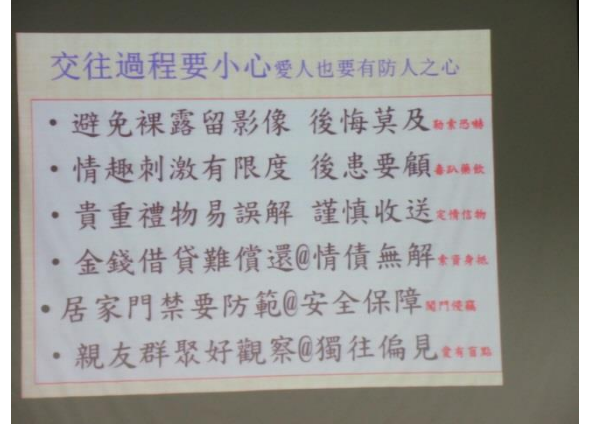 交往過程要小心愛人也要有防人之心
• 避免裸露留影像 後悔莫及勒索恐嚇
• 情趣刺激有限度 後患要顧毒趴藥飲
• 貴重禮物易誤解 謹慎收送定情信物
• 金錢借貸難償還@情債無解索資身抵
• 居家門禁要防範@安全保障闖門侵竊
• 親友群聚好觀察@獨往偏見愛有盲點